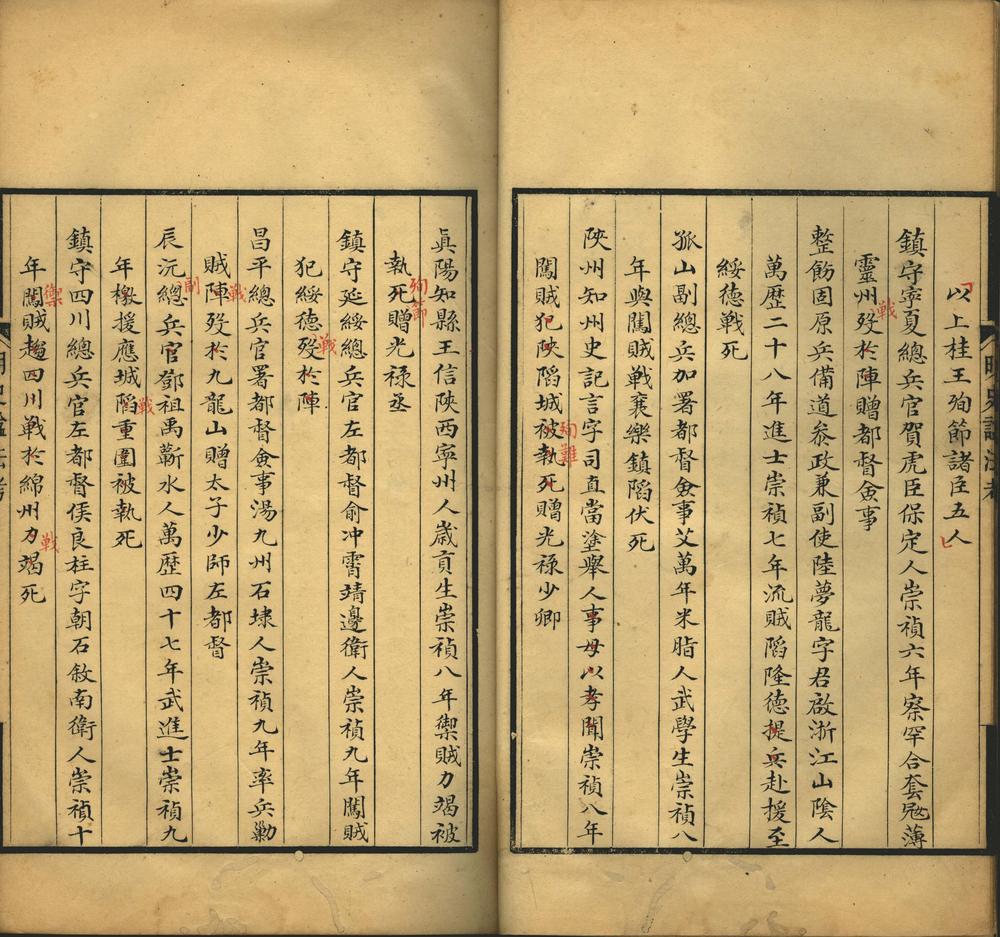 以上桂王殉節諸臣五人
鎮守寧夏總兵官賀虎臣保定人崇禎六年察罕合套冦薄
靈州歿於陣贈都督僉事
戰
整飭固原兵備道參政兼副使陸夢龍字君啟浙江山陰人
萬歷二十八年進士崇禎七年流賊陷隆德提兵赴援至
綏德戰死
孤山副總兵加署都督僉事艾萬年米脂人武學生崇禎八
年與闖賊戰襄樂鎮陷伏死
陝州知州史記言字司直當塗舉人事母以孝聞崇禎八年
闖賊犯陝陷城被執死贈光祿少卿
殉難
眞陽知縣王信陝西寧州人歲貢生崇禎八年禦賊力竭被
執死贈光祿丞
殉節
鎮守延綏總兵官左都督俞冲霄靖邊衛人崇禎九年闖賊
犯綏德歿於陣
戰
昌平總兵官署都督僉事湯九州石埭人崇禎九年率兵勦
賊陣歿於九龍山贈太子少師左都督
戰
辰沅總兵官鄧祖禹蘄水人萬歷四十七年武進士崇禎九
副
年檄援應城陷重圍被執死
戰
鎮守四川總兵官左都督侯良柱字朝石敘南衛人崇禎十
年闖賊趨四川戰於綿州力竭死
禦
戰